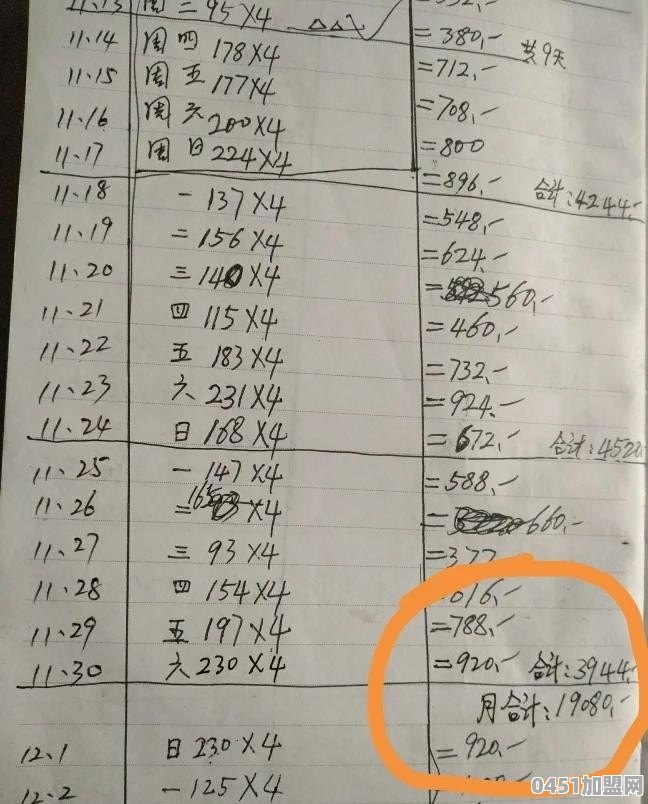 11.13 周三 95×4
11.14 周四 178×4 =380.- 共9天
11.15 周五 177×4 =712.-
11.16 周六 200×4 =708.-
11.17 周日 224×4 =800
=896.- 合计:4244.-
11.18 一 137×4 =548.-
11.19 二 156×4 =624.-
11.20 三 140×4 =560.-
11.21 四 115×4 =460.-
11.22 五 183×4 =732.-
11.23 六 231×4 =924.-
11.24 日 168×4 =672.- 合计:4520
11.25 一 147×4 =588.-
11.26 二 165×4 =660.-
11.27 三 93×4 =377
11.28 四 154×4 =616.-
11.29 五 197×4 =788.-
11.30 六 230×4 =920.- 合计:3944.-
月合计:19080.-
12.1 日 230×4 =920.-
12.2 一 125×4
0451加盟网